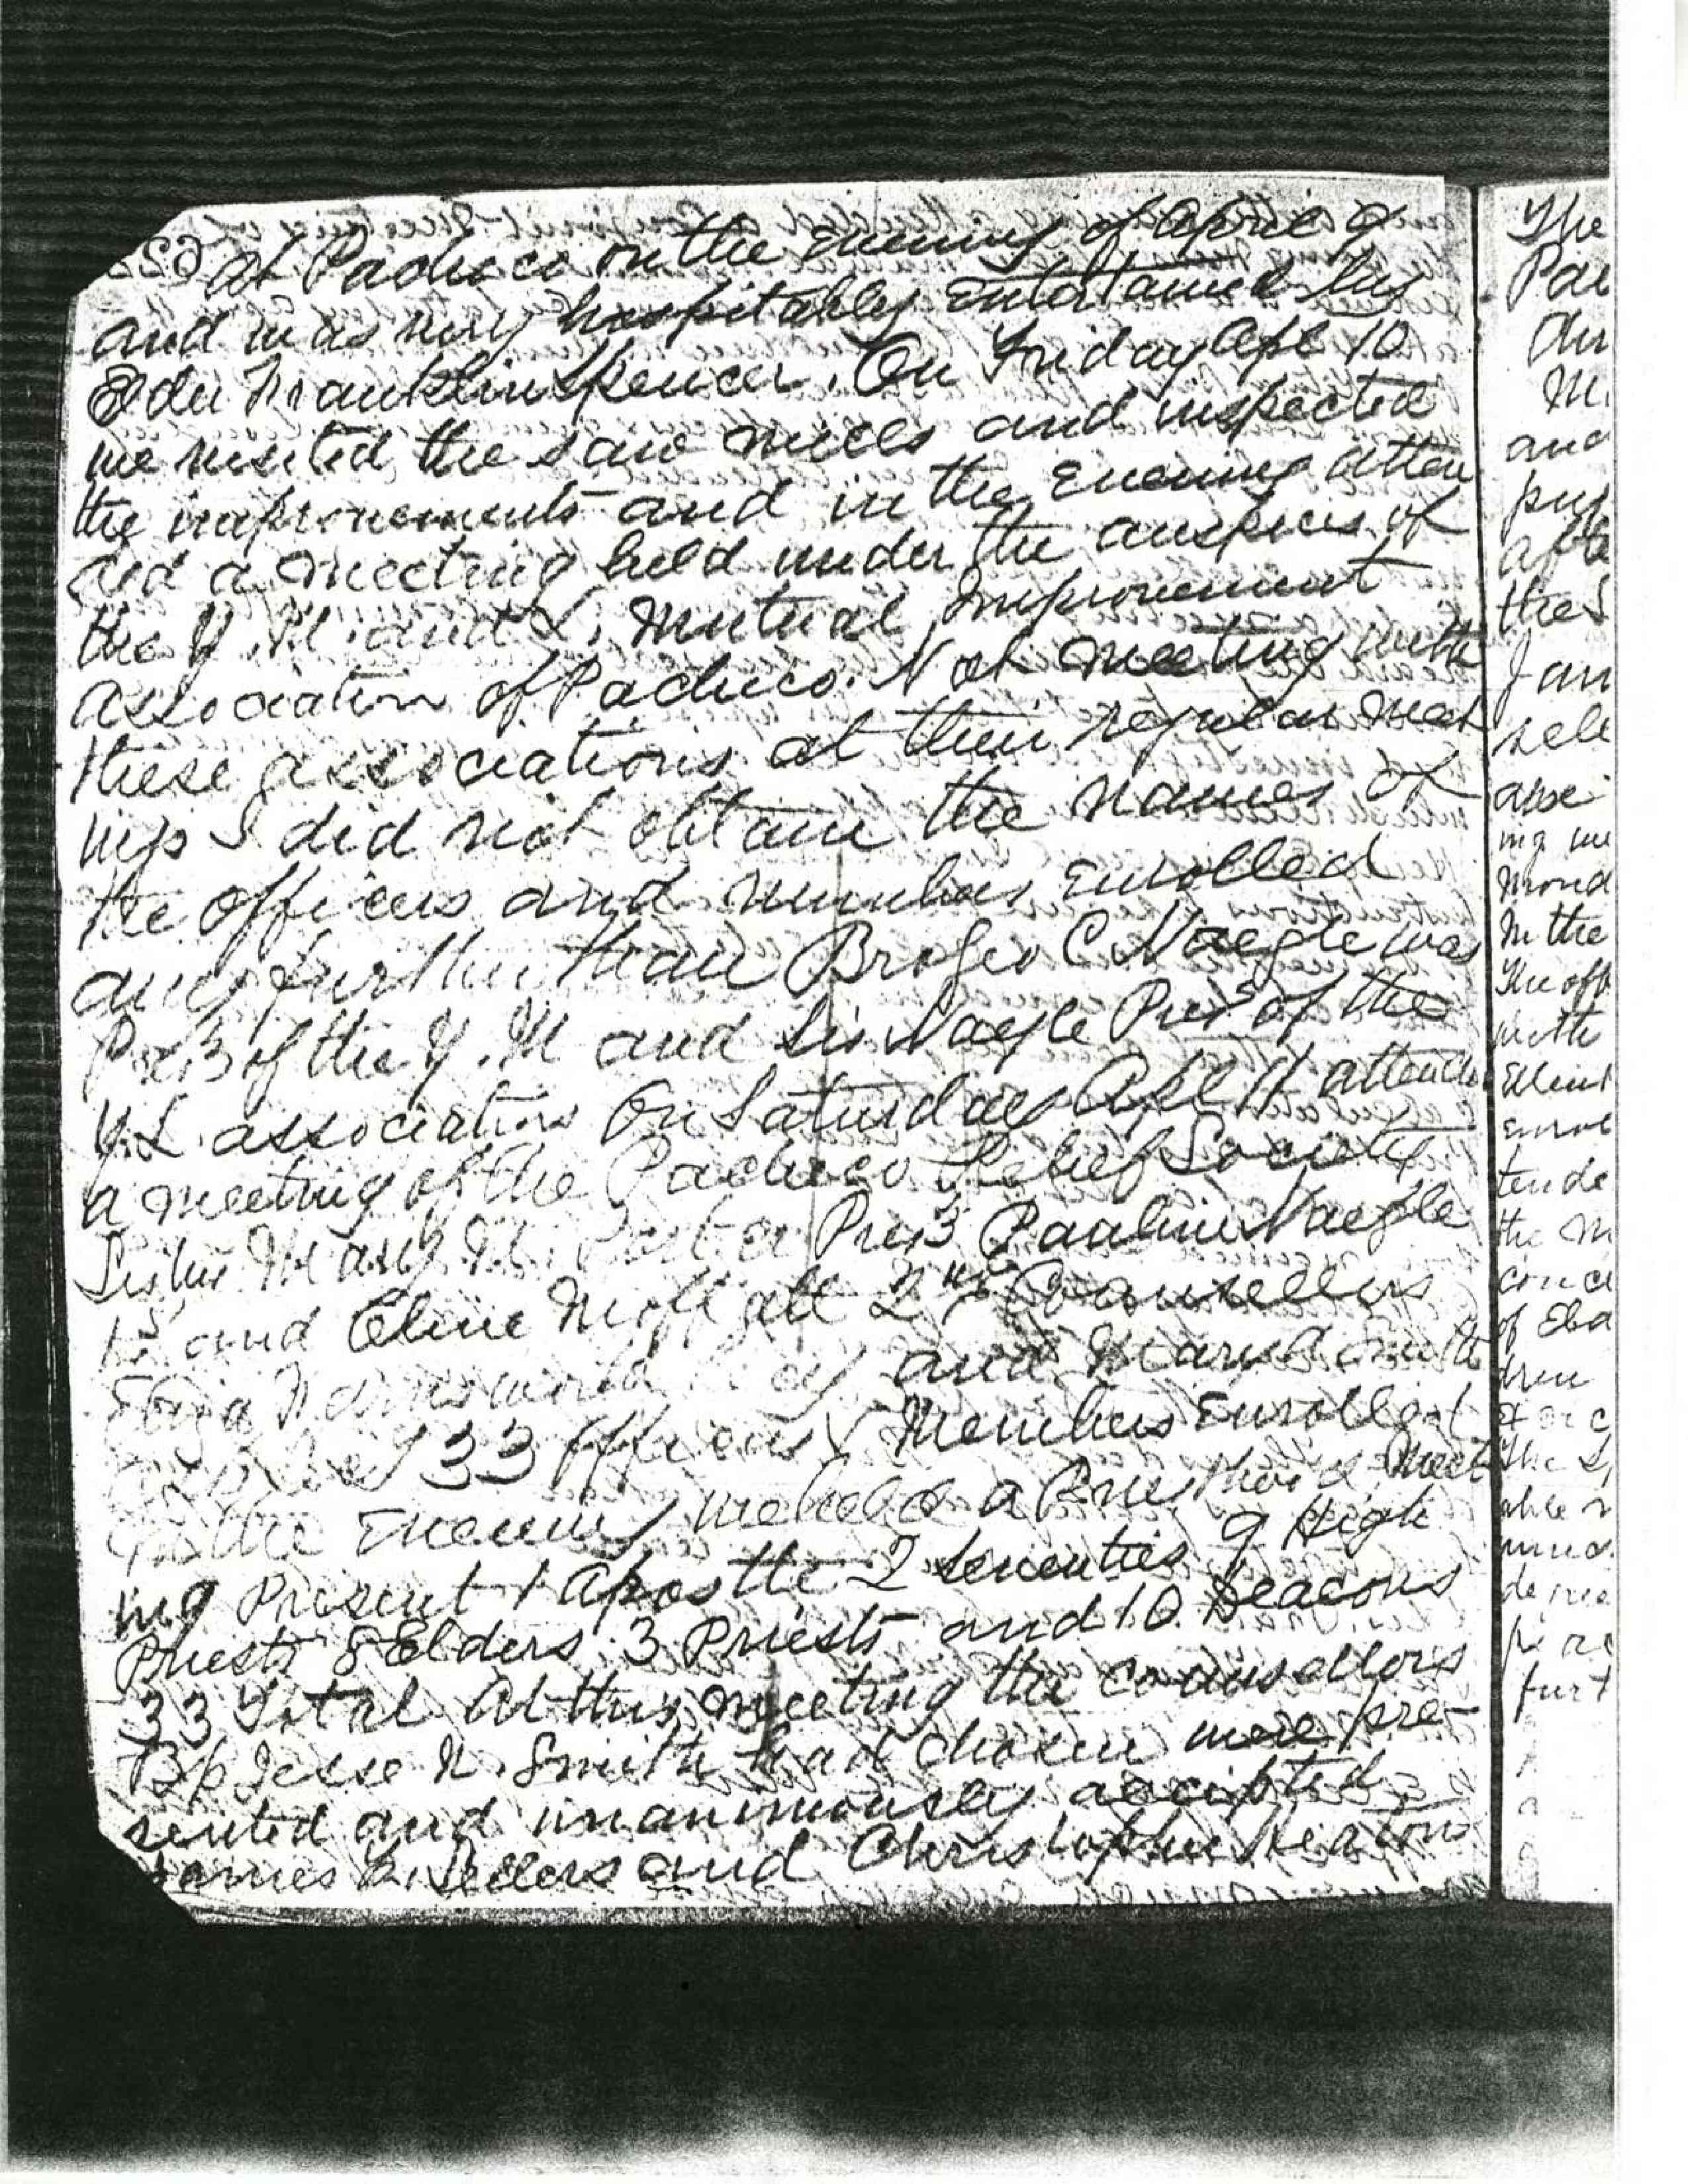 at Pacheco on the evening of April 9
and was very hospitably entertained by
Elder Franklin Spencer. On Friday Apl 10
we visited the saw mills and inspected
the improvements and in the evening atten
ded a meeting held under the auspices of
the Y. M. and L. Mutual Improvement
association of Pacheco. Not meeting with
these associations at their regular meet
ings I did not obtain the names of
the officers and numbers enrolled
any further than Bro Geo C. Naegle was
Pres of the Y. M and Sis Naegle Pres of the
Y. L. association On Saturday Apl 11 attended
a meeting of the Pacheco Relief Society
Sister Mary M. Porter Pres Pauline Naegle
1st and Celine Moffatt 2nd Counsellors
and Mary Smith
33 officers & Members Enrolled
In the Evening we held a Priesthood Meet
ing Present 1 Apostle 2 Seventies 9 High
Priests 8 Elders 3 Priests and 10 Deacons
33 Total At this meeting the counsellors
Bp Jesse N. Smith had chosen were pre-
sented and unanimously accepted
James R. Sellers and Christopher Heaton
The
and
the S
ing we
In the
The off
with
the m
of
the
furt